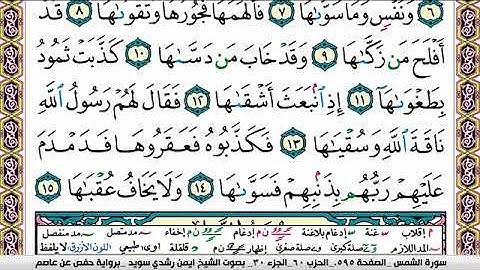 ٦ وَنَفْسٍ وَمَا سَوَّىٰهَا ٧ فَأَلْهَمَهَا فُجُورَهَا وَتَقْوَىٰهَا ٨ قَدْ
أَفْلَحَ مَن زَكَّىٰهَا ٩ وَقَدْ خَابَ مَن دَسَّىٰهَا ١٠ كَذَّبَتْ ثَمُودُ
بِطَغْوَىٰهَا ١١ إِذِ انۢبَعَثَ أَشْقَىٰهَا ١٢ فَقَالَ لَهُمْ رَسُولُ اللَّهِ
نَاقَةَ اللَّهِ وَسُقْيَٰهَا ١٣ فَكَذَّبُوهُ فَعَقَرُوهَا فَدَمْدَمَ
عَلَيْهِمْ رَبُّهُم بِذَنۢبِهِمْ فَسَوَّىٰهَا ١٤ وَلَا يَخَافُ عُقْبَٰهَا ١٥
م إقلاب غنة إدغام بلاغنة إدغام ن م إخفاء مد متصل مد منفصل
المد اللازم صلة كبرى صلة صغرى إظهار ن م قلقلة اوى طبيعي اللون الأزرق لا يلفظ
سورة الشمس _الصفحة ٥٩٥_ الحزب ٦٠_ الجزء ٣٠_ بصوت الشيخ ايمن رشدي سويد _برواية حفص عن عاصم